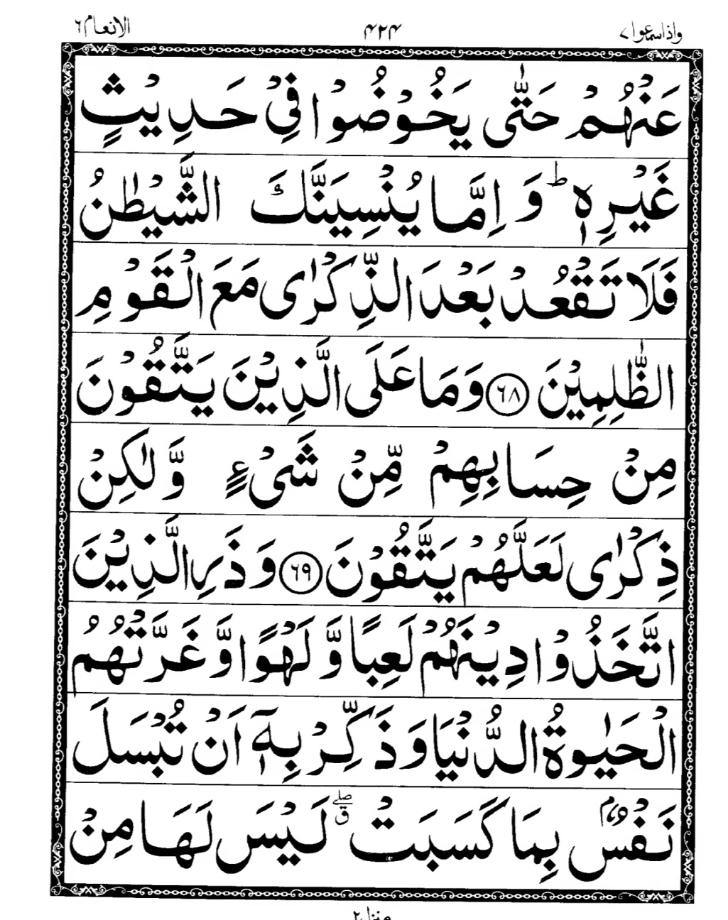 واذاسمعوا۷ ۴۲۴ الانعام۶
عَنْهُمْ حَتّٰى يَخُوْضُوْا فِيْ حَدِيْثٍ
غَيْرِهٖ ؕ وَ اِمَّا يُنْسِيَنَّكَ الشَّيْطٰنُ
فَلَا تَقْعُدْ بَعْدَ الذِّكْرٰى مَعَ الْقَوْمِ
الظّٰلِمِيْنَ ﴿۶۸﴾ وَمَا عَلَى الَّذِيْنَ يَتَّقُوْنَ
مِنْ حِسَابِهِمْ مِّنْ شَيْءٍ وَّ لٰكِنْ
ذِكْرٰى لَعَلَّهُمْ يَتَّقُوْنَ ﴿۶۹﴾ وَ ذَرِ الَّذِيْنَ
اتَّخَذُوْا دِيْنَهُمْ لَعِبًا وَّ لَهْوًا وَّ غَرَّتْهُمُ
الْحَيٰوةُ الدُّنْيَا وَ ذَكِّرْ بِهٖۤ اَنْ تُبْسَلَ
نَفْسٌۢ بِمَا كَسَبَتْ ۖۗ لَيْسَ لَهَا مِنْ
منزل۲